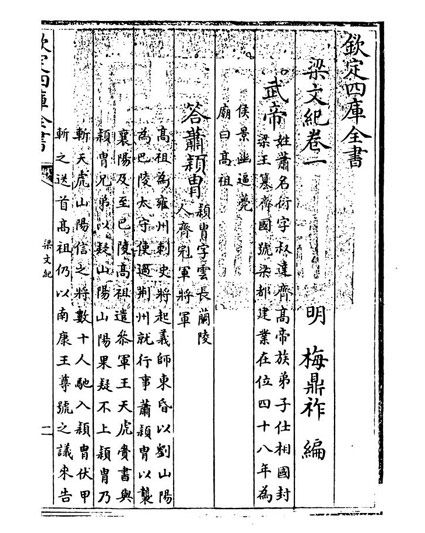 欽定四庫全書
梁文紀卷一
明 梅鼎祚 編
武帝
姓蕭名衍字叔達齊高帝族弟子仕相國封
梁王篡齊國號梁都建業在位四十八年為
侯景幽逼薨
廟曰高祖
答蕭穎胄
穎胄字雲長蘭陵
人齊冠軍將軍
高祖為雍州刺史將起義師東昏以劉山陽
為巴陵太守使過荆州就行事蕭穎胄以襲
襄陽及至巴陵高祖遣叅軍王天虎賫書與
穎胄兄弟以疑山陽山陽果疑不上穎胄乃
斬天虎山陽信之將數十人馳入穎胄伏甲
斬之送首高祖仍以南康王尊號之議來告
欽定四庫全書
梁文紀
二